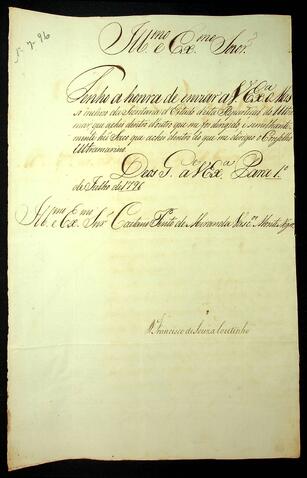 N. 7. 96
Ill.mo e Ex.mo Snor.
Tenho a honra de enviar a V. Ex.a o Masso
incluso da Secretaria d Estado desta Repartição do Ultra
mar que achei dentro doutro que me foi dirigido e semelhante
mente hũ Saco que achei dentro do que me dirigio o Conselho
Ultramarino
Deos G.e a V. Ex.a Pará 1.o
de Julho de 1796
Ill.mo e Ex.mo Snr. Caetano Pinto de Miranda
D. Francisco de Souza Coutinho